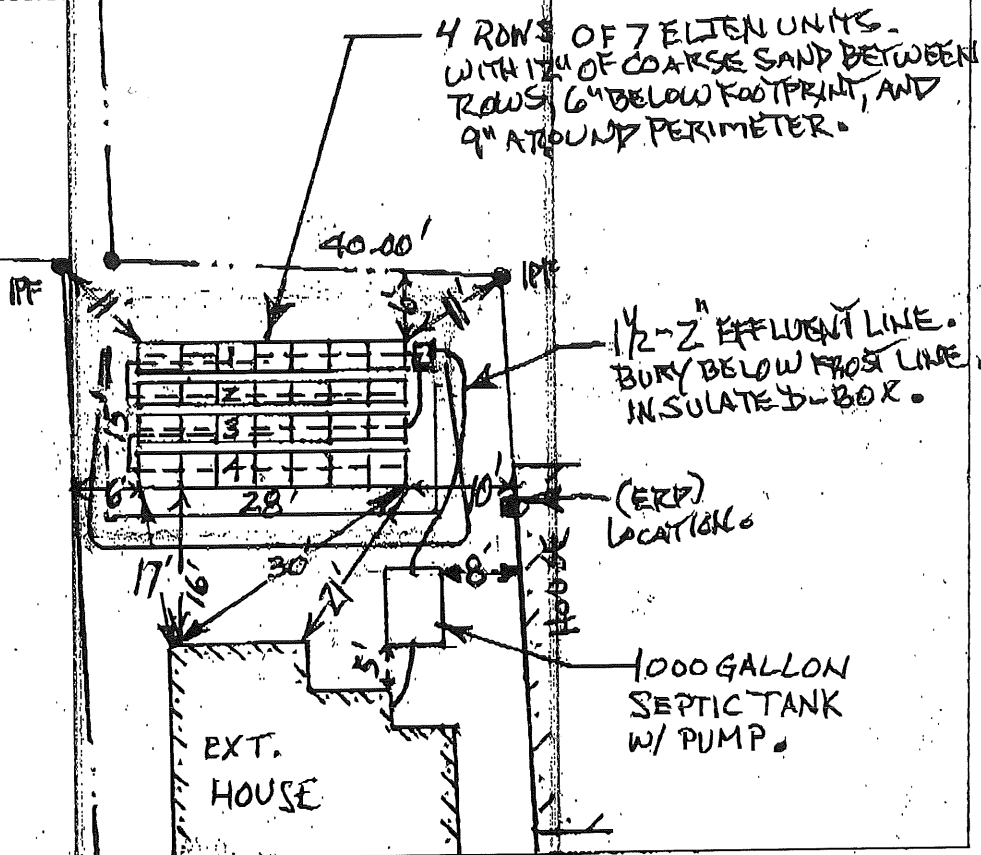 4 ROWS OF 7 ELJEN UNITS.
WITH 12" OF COARSE SAND BETWEEN
ROWS, 6" BELOW FOOTPRINT, AND
9" AROUND PERIMETER.
40.00'
IPF
IPF
11'
11'
6'
1
2
3
4
15'
6'
28'
10'
1½-2" EFFLUENT LINE.
BURY BELOW FROST LINE.
INSULATE D-BOX.
(ERP)
LOCATION.
17'
16'
30'
8'
HOUSE
5'
1000 GALLON
SEPTIC TANK
W/ PUMP.
EXT.
HOUSE